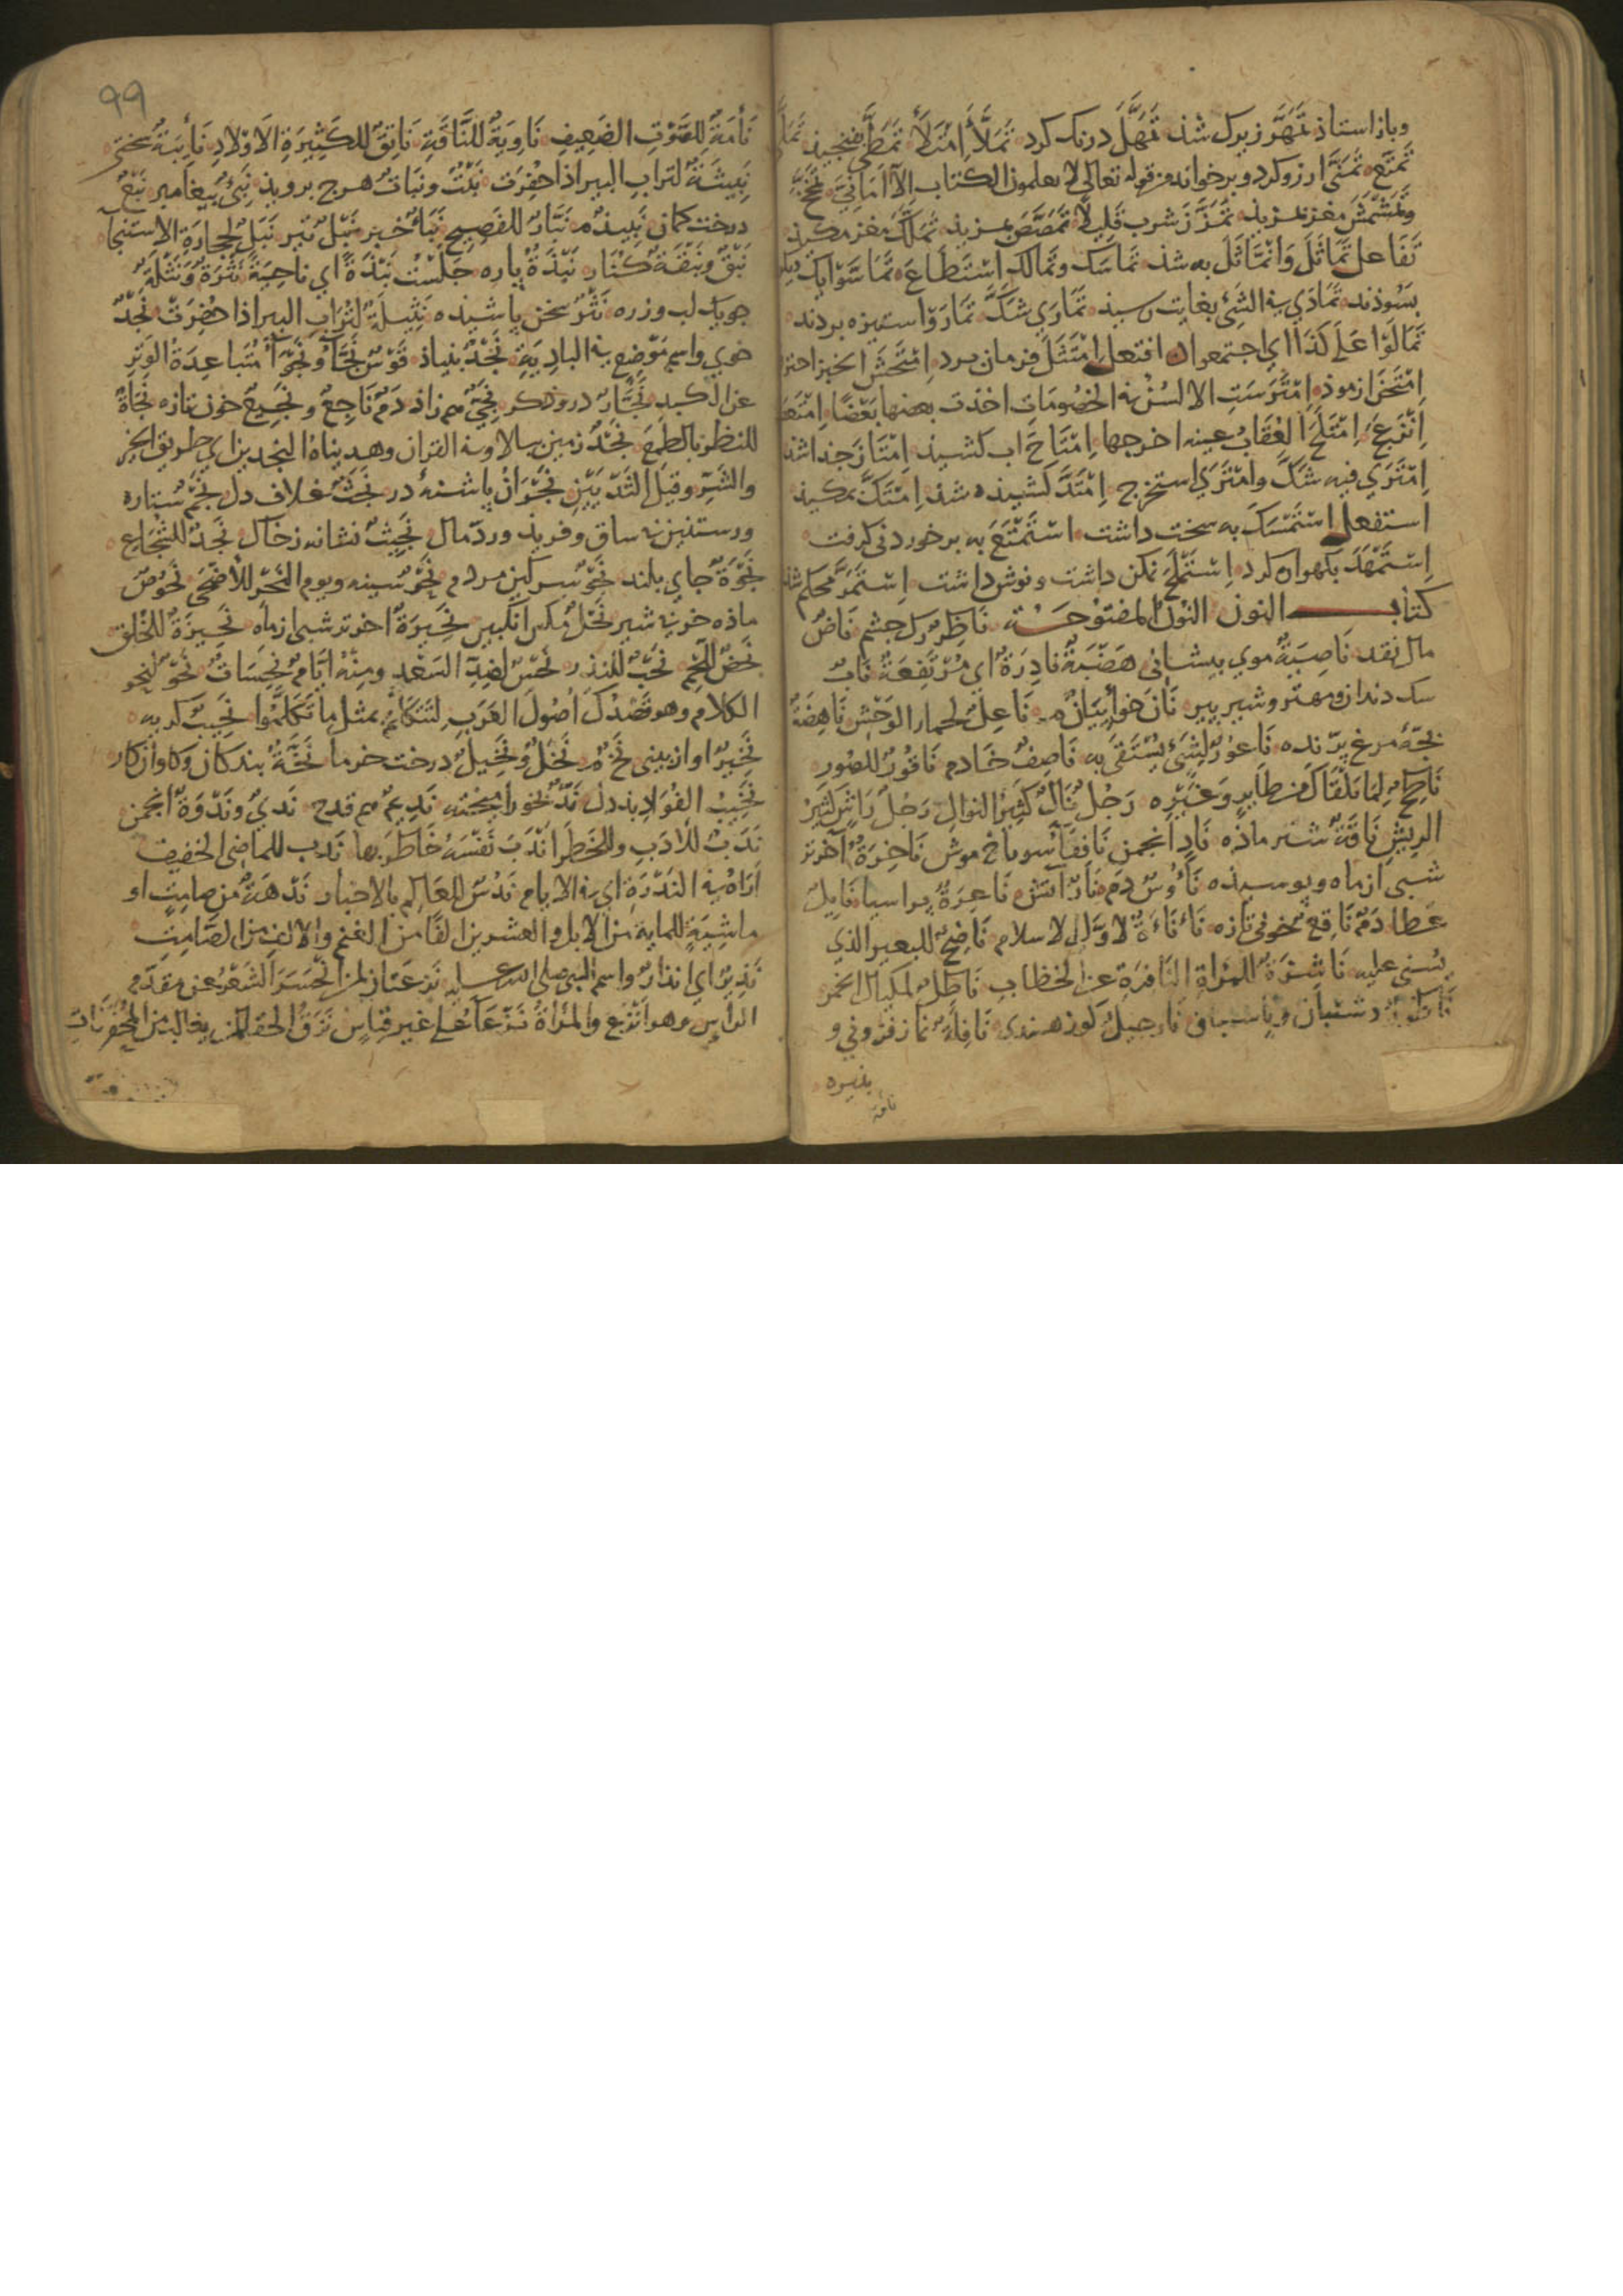 وباز استاذ تمهّر زیرک شذ تَمَهَّلَ درنک کرد تَمَلَّأَ اِمْتَلَأَ تَمَطَّی
تَمَتَّعَ تَمَنَّی ارزو کرد و برخواند من قوله تعالی لا یعلمون الکتاب الّا اَمَانِیَّ
وتَمَشَّشَ مغز بمزیذ تَمَزَّزَ شرب قلیلًا تَمَصَّصَ بمزیذ تَمَكَّكَ مغز مکیذ
تَفَاعل تَمَاثَلَ وَانْمَاثَلَ به شذ تَمَاسَكَ وتَمَالَكَ اسْتَطَاعَ
بسوذند تَمَادَی فی الشَّیْ بغایت رسید تَمَارَی شَكَّ تَمَارَوْا ستیزه بردند
تَمَالَوْا عَلَی كَذَا ای اجتمعوا افتعل اِمْتَثَلَ فرمان برد اِمْتَحَشَ الخبز احترق
اِمْتَحَنَ ازموذ اِمْتَرَسَتِ الالسُنُ فی الخصومَات اخذت بعضها بَعْضًا
اِنْتَزَعَ اِمْتَلَخَ العُقَابُ عینه اخرجها اِمْتَاحَ اب کشیذ اِمْتَازَ جذا شذ
اِمْتَرَی فیه شَكَّ وامْتَرَی استخرج اِمْتَدَّ کشیذه شذ اِمْتَكَّ بمکیذ
استفعل اسْتَمْسَكَ به سخت داشت اسْتَمْتَعَ به برخوردنی کرفت
اِسْتَمْهَدَ بکهواره کرد اِسْتَمْلَحَ نمکن داشت و خوش داشت اِسْتَمَرَّ محکم شذ
کتاب النون النون المفتوحة نَاظِرٌ کرک جشم نَاضٌّ
مال نقد نَاصِیَةٌ موی بیشانی هَضْبَةٌ نادِرَةٌ ای مُرْتَفِعَةٌ نَابٌ
سک دندان ومهتر وشیر بیر نَانَ خوا نَاعِلٌ لحمار الوَحْش نَاهِضَةٌ
بجّهٔ مرغ پرّنده نَاعُوْرٌ لِشَیْءٍ یُسْتَقَی به نَاصِفٌ خَادم نَاقُوْرٌ للصُّور
نَاطِحٌ لِمَا تَلَقَّاكَ من طَایِرٍ وَغَیْرِه رَجُلٌ نَالٌ کَثِیْرُ النوالِ رَجُلٌ رَاشٌ کَثِیْرُ
الرِیْشِ نَاقَةٌ شتر ماذه نَادٍ انجمن نَافِقَآءُ سوراخ موش نَاحِرَةٌ آخرتر
شبی از ماه و پوسیذه نَاؤُوْسٌ دَم نَارٌ آتش نَاعِرَةٌ جراسیا نَایِلٌ
عَطا دَمٌ نَاقِعٌ خونی تازه نَأْنَأَةٌ لِاَوَّلِ الاسلام نَاضِحٌ للبعیر الذی
یُسْنَی علیه نَاشِزَةٌ للمرأة النَّافِرَةِ عن الخطابِ نَاطِلٌ لمکیال الخمر
نَاطُوْرٌ دشتبان و پاسبان نَارجیلٌ کوز هندی نَافِلَةٌ نماز فزونی و
نبیره
نافة
٩٩
نَأْمَةٌ للصَّوْتِ الضَّعِیفِ نَاوِیَةٌ للنَّاقَةِ نَاتِقٌ للکَثِیْرَةِ الاَوْلادِ نَائِبَةٌ سختی
نَبِیْثَةٌ لتراب البیر اذا حُفِرَت نَبْتٌ ونبَاتٌ هرج بروید نَبِیٌّ پیغامبر نَبْعٌ
درخت کمان نَبِیْذٌ م نَبَّارٌ للفَصِیح نَبَأٌ خبر نَبْلٌ تیر نَبَلٌ لِحِجَارَةِ الاِسْتِنْجَآء
نَبْقٌ ونَبِقَةٌ کُنَار نَبْذَةٌ پاره جَلَسْتُ نَبْذَةً ای نَاحِیَةً نَثْرَةٌ ونَثْلَةٌ
جویک لب وزره نَثْرٌ سخن پاشیذه نَثِیْلَةٌ لِتُرَاب البیر اذا حُفِرَتْ نَجَدٌ
خوی واسم مَوْضِعٍ فی البادِیَةِ نَجْدٌ بنیاذ قَوْسٌ نَجَّآءُ ونَجْوَآءُ مُتَبَاعِدَةُ الوَتَرِ
عن الکبد نَجَّارٌ دروذکر نَجِیٌّ هم راز دَمٌ نَاجِعٌ ونَجِیْعٌ خون تازه نَجْأَةٌ
للنظر بالطمع نَجْدٌ زمین بالا وفی القران وهدیناهُ النجدین ای طریق الخیر
والشَّرِّ وقیل الثَّدْیَیْنِ نَجْرَانُ پاشنهٔ در نَجَثٌ غلاف دل نَجْمٌ ستاره
ورستنین نه ساق و فریذ ورد مال نَجِیْثٌ نشانه ز خاک نَجَدٌ للشُّجَاع
نَجْوَةٌ جای بلند نَجْوٌ سرکین مردم نَحْرٌ سینه ویوم النَّحْرِ للاَضْحَی نَحُوْصٌ
ماذه خر بی شیر نَحْلٌ مکس انکبین نَحِیْرَةٌ اخرتر شبی از ماه نَحِیْزَةٌ للخُلق
نَحْضٌ اللَّحْمِ نَحْبٌ للنذر نَحْسٌ لِضِدِّ السَّعْدِ ومِنْهُ اَیَّامٌ نَحِسَاتٌ نَحْوٌ لنحو
الکلام وهو قَصْدُكَ اُصُوْلَ العَرَبِ لِتَتَکَلَّمَ بمثل ما تَکَلَّمُوْا نَحِیْبٌ کریه
نَخِیْرٌ اواز بینی نَخْلٌ ونَخِیْلٌ درخت خرما نَخَّةٌ بندکان وکاوان کار
نَخِیْبُ الفُوَادِ بذ دل نَدٌّ لبخور امیخته نَدِیْمٌ هم قدح نَدِیٌّ ونَدْوَةٌ انجمن
نَدَبٌ للاَدَبِ وللخَطَرِ اَنْدَبَ نَفْسَهُ خَاطَرَ بها نَدْب للماضی الخفیف
اَرَاهُ فی النَّدْرَةِ ای فی الایام نَدُسٌ للعَالِمِ بالاخبار نَدْهَةٌ من صامِتٍ او
ماشِیَةٍ للمایة من الابل والعشرین الفًا من الغنم والالف من الصَّامِتِ
نَذِیْرٌ ای انذارٌ واسم النبی صلی الله علیه نَزَعَتَانِ لمن انْحَسَرَ الشَّعْرُ عن مقدَّم
الرأسِ وهو اَنْزَعُ والمرأةُ نَزْعَآءُ علی غیر قیاسٍ